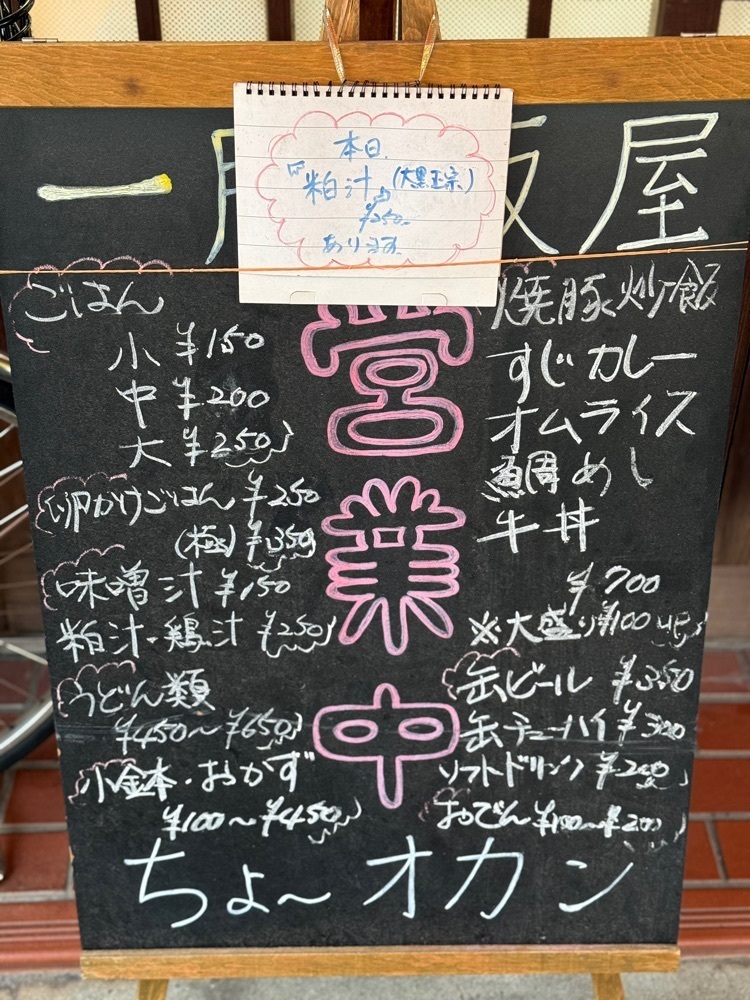 本日
粕汁(大黒正宗)
¥250-
あります
一 飯屋
営業中
ごはん
小 ¥150
中 ¥200
大 ¥250
卵かけごはん ¥250
(極) ¥350
味噌汁 ¥150
粕汁・鶏汁 ¥250
うどん類
¥450〜¥650
小鉢・おかず
¥100〜¥450
焼豚炒飯
すじカレー
オムライス
鯛めし
牛丼
¥700
※大盛り¥100up
缶ビール ¥350
缶チューハイ ¥300
ソフトドリンク ¥200
おでん ¥100〜¥200
ちょ〜オカン